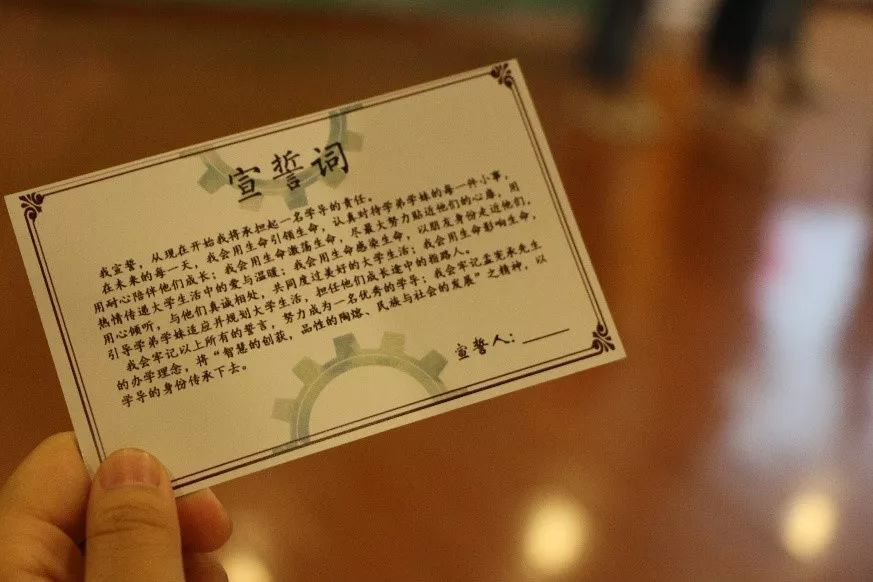 宣誓词
我宣誓，从现在开始我将承担起一名学导的责任。
在未来的每一天，我会用生命引领生命，认真对待学弟学妹的每一件小事，
用耐心陪伴他们成长；我会用生命激荡生命，尽最大努力贴近他们的心扉，用
热情传递大学生活中的爱与温暖；我会用生命感染生命，以朋友身份走近他们，
用心倾听，与他们真诚相处，共同度过美好的大学生活；我会用生命影响生命，
引导学弟学妹适应并规划大学生活，担任他们成长途中的指路人。
我会牢记以上所有的誓言，努力成为一名优秀的学导；我会牢记孟宪承先生
的办学理念，将“智慧的创获，品性的陶熔、民族与社会的发展”之精神，以
学导的身份传承下去。
宣誓人：